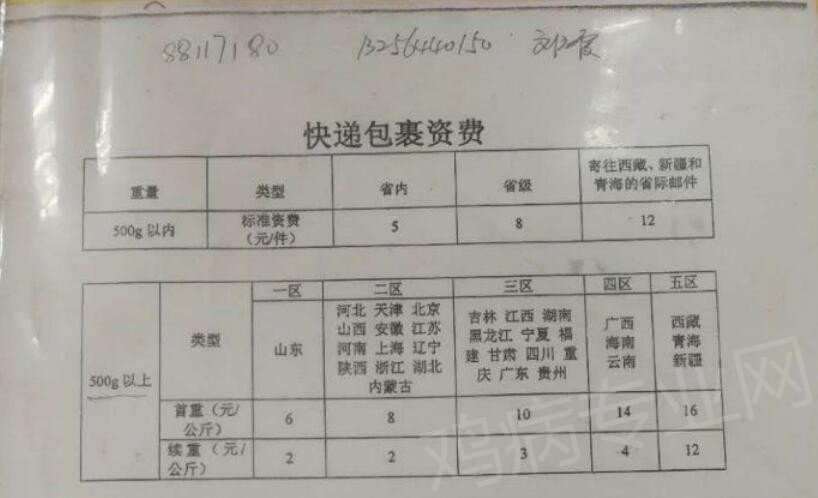 88117180 13256440150
快递包裹资费
重量 类型 省内 省级 寄往西藏、新疆和
青海的省际邮件
500g以内 标准资费
(元/件) 5 8 12
500g以上 类型 一区 二区 三区 四区 五区
山东
河北 天津 北京
山西 安徽 江苏
河南 上海 辽宁
陕西 浙江 湖北
内蒙古
吉林 江西 湖南
黑龙江 宁夏 福
建 甘肃 四川 重
庆 广东 贵州
广西
海南
云南
西藏
青海
新疆
首重(元/
公斤) 6 8 10 14 16
续重(元/
公斤) 2 2 3 4 12
鸡病专业网